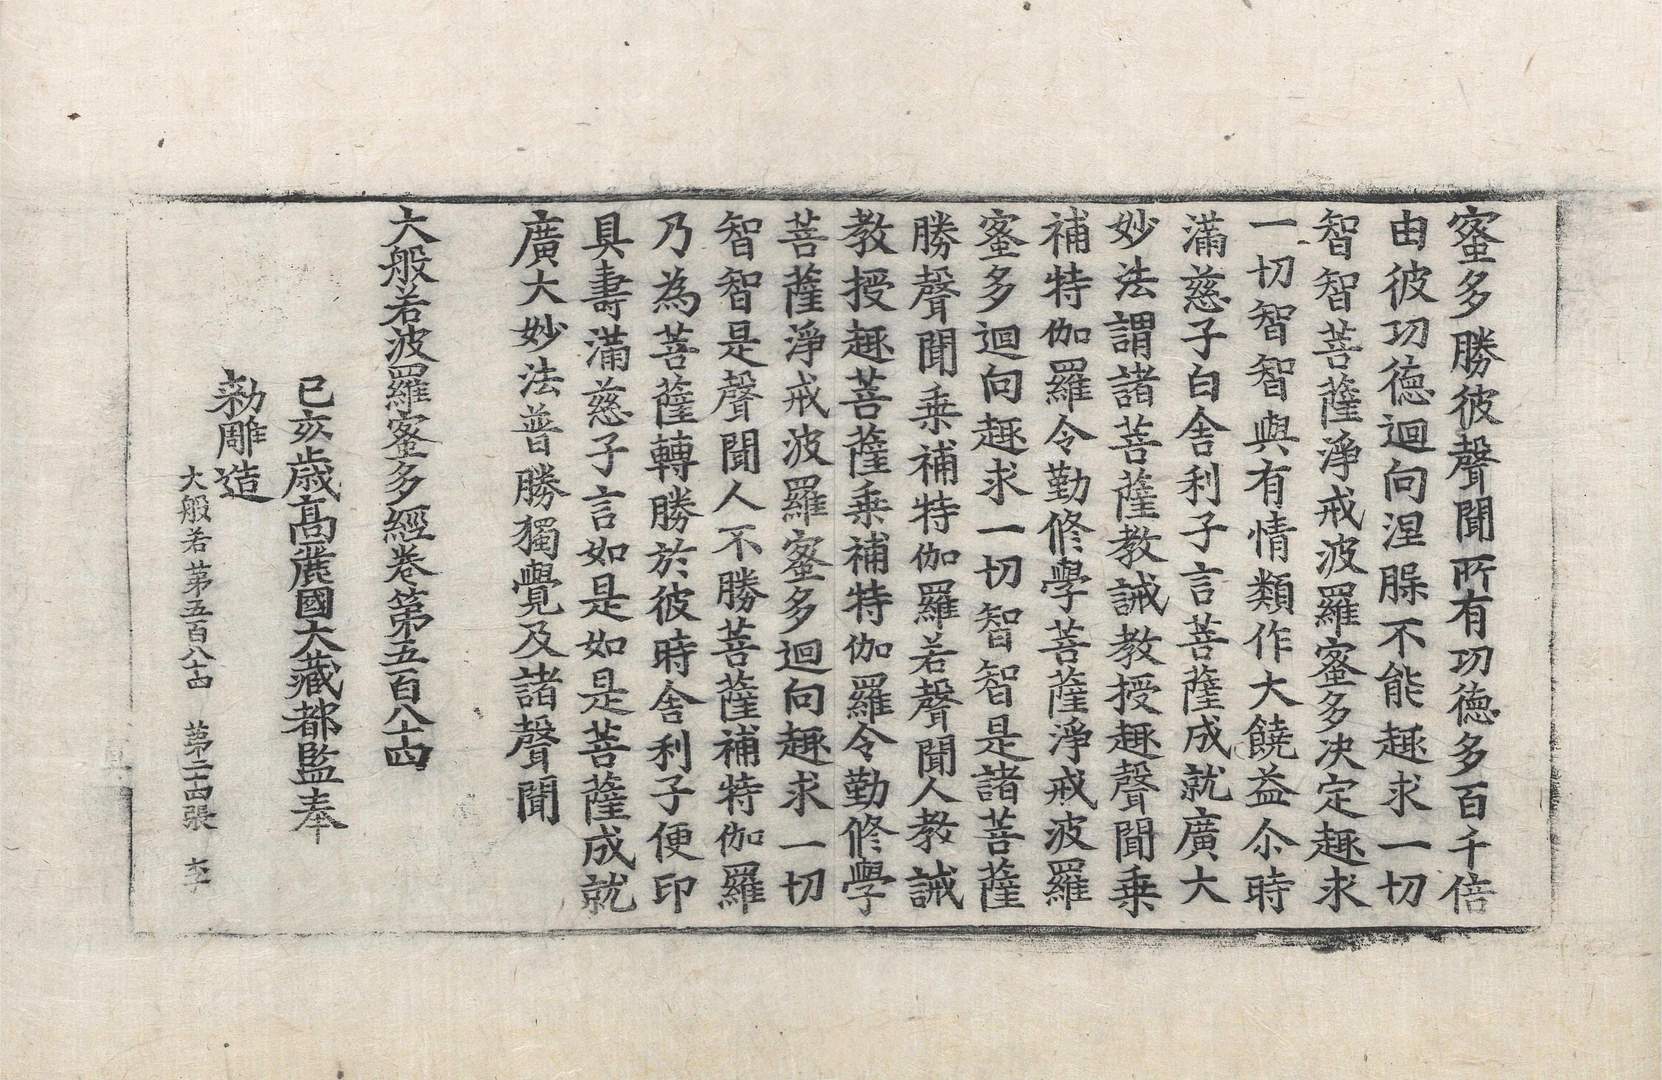 蜜多勝彼聲聞所有功德多百千倍
由彼功德迴向涅槃不能趣求一切
智智菩薩淨戒波羅蜜多决定趣求
一切智智與有情類作大饒益尒時
滿慈子白舍利子言菩薩成就廣大
妙法謂諸菩薩教誡教授趣聲聞乘
補特伽羅令勤修學菩薩淨戒波羅
蜜多迴向趣求一切智智是諸菩薩
勝聲聞乘補特伽羅若聲聞人教誡
教授趣菩薩乘補特伽羅令勤修學
菩薩淨戒波羅蜜多迴向趣求一切
智智是聲聞人不勝菩薩補特伽羅
乃為菩薩轉勝於彼時舍利子便印
具壽滿慈子言如是如是菩薩成就
廣大妙法普勝獨覺及諸聲聞
大般若波羅蜜多經卷第五百八十四
己亥歲高麗國大藏都監奉
勅雕造
大般若第五百八十四 第二十四張 李